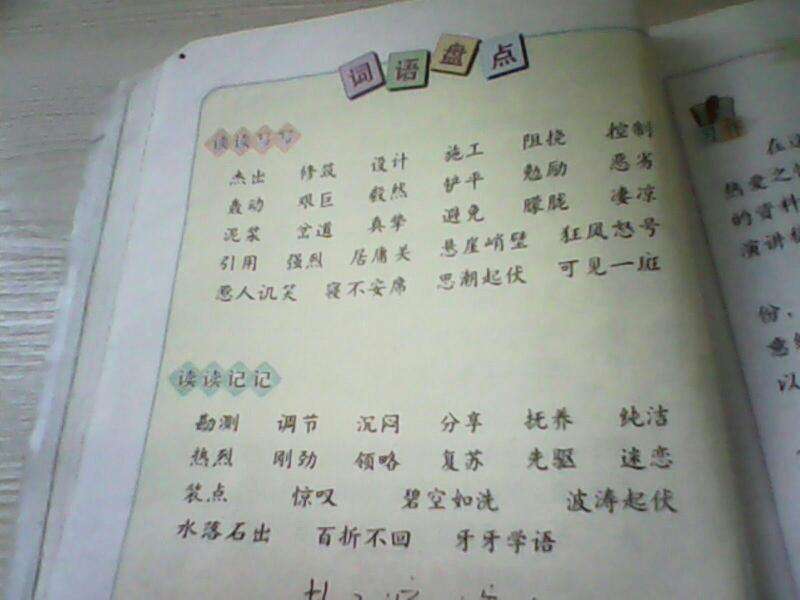 词语盘点
读读写写
杰出 修筑 设计 施工 阻挠 控制
轰动 艰巨 毅然 铲平 勉励 恶劣
泥浆 岔道 真挚 避免 朦胧 凄凉
引用 强烈 居庸关 悬崖峭壁 狂风怒号
惹人讥笑 寝不安席 思潮起伏 可见一斑
读读记记
勘测 调节 沉闷 分享 抚养 纯洁
热烈 刚劲 领略 复苏 先驱 迷恋
装点 惊叹 碧空如洗 波涛起伏
水落石出 百折不回 牙牙学语
在这
热爱之情
的资料
演讲稿
份,
以